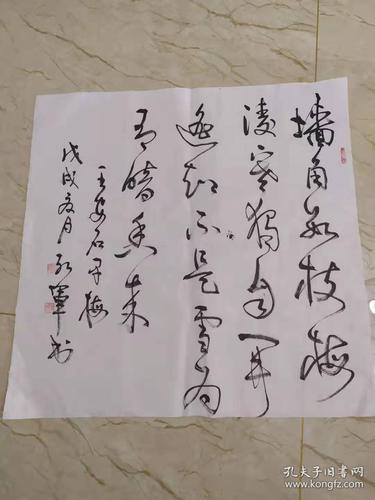 墙角数枝梅
凌寒独自开
遥知不是雪为
有暗香来
王安石 梅
戊戌夏月 军书
孔夫子旧书网
www.kongfz.com